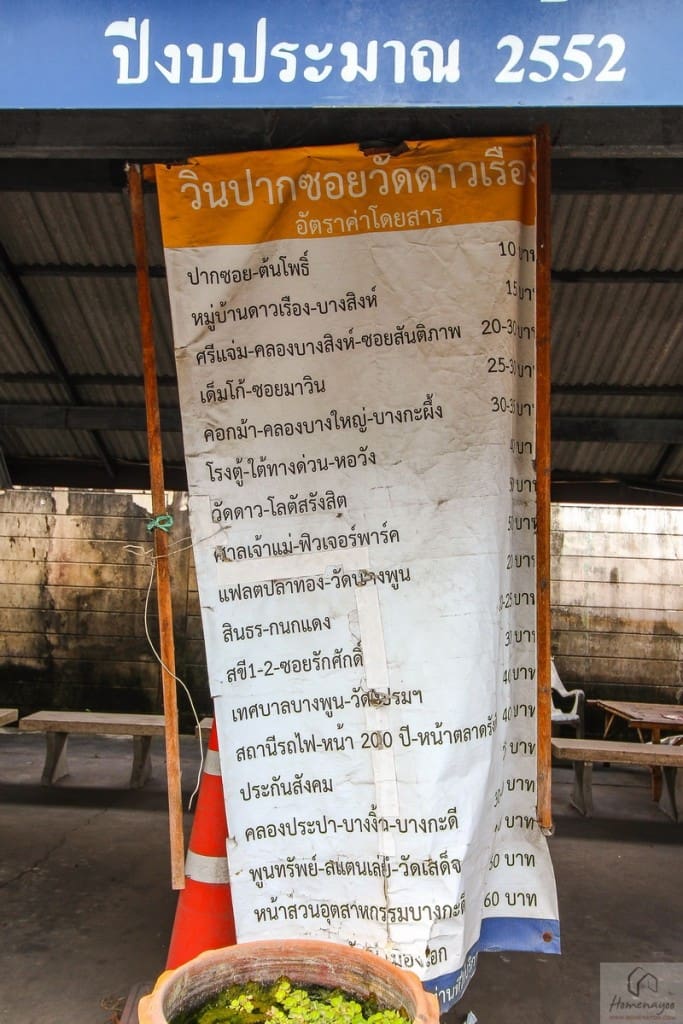 ปีงบประมาณ 2552
วินปากซอยวัดดาวเรือง
อัตราค่าโดยสาร
ปากซอย-ต้นโพธิ์ 10 บาท
หมู่บ้านดาวเรือง-บางสิงห์ 15 บาท
ศรีแจ่ม-คลองบางสิงห์-ซอยสันติภาพ 20-30 บาท
เด็มโก้-ซอยมาวิน 25-30 บาท
คอกม้า-คลองบางใหญ่-บางกะผึ้ง 30-35 บาท
โรงตู้-ใต้ทางด่วน-หอวัง บาท
วัดดาว-โลตัสรังสิต บาท
ศาลเจ้าแม่-ฟิวเจอร์พาร์ค บาท
แฟลตปลาทอง-วัดนางพูน 20 บาท
สินธร-กนกแดง บาท
สขี1-2-ซอยรักศักดิ์ 30 บาท
เทศบาลบางพูน-วัดเปรมฯ 40 บาท
สถานีรถไฟ-หน้า 200 ปี-หน้าตลาดรังสิต 40 บาท
ประกันสังคม บาท
คลองประปา-บางงิ้ว-บางกะดี 30 บาท
พูนทรัพย์-สแตนเลย์-วัดเสด็จ บาท
หน้าสวนอุตสาหกรรมบางกะดี บาท
เมืองเอก 60 บาท
Homenayoo
WWW.HOMENAYOO.COM